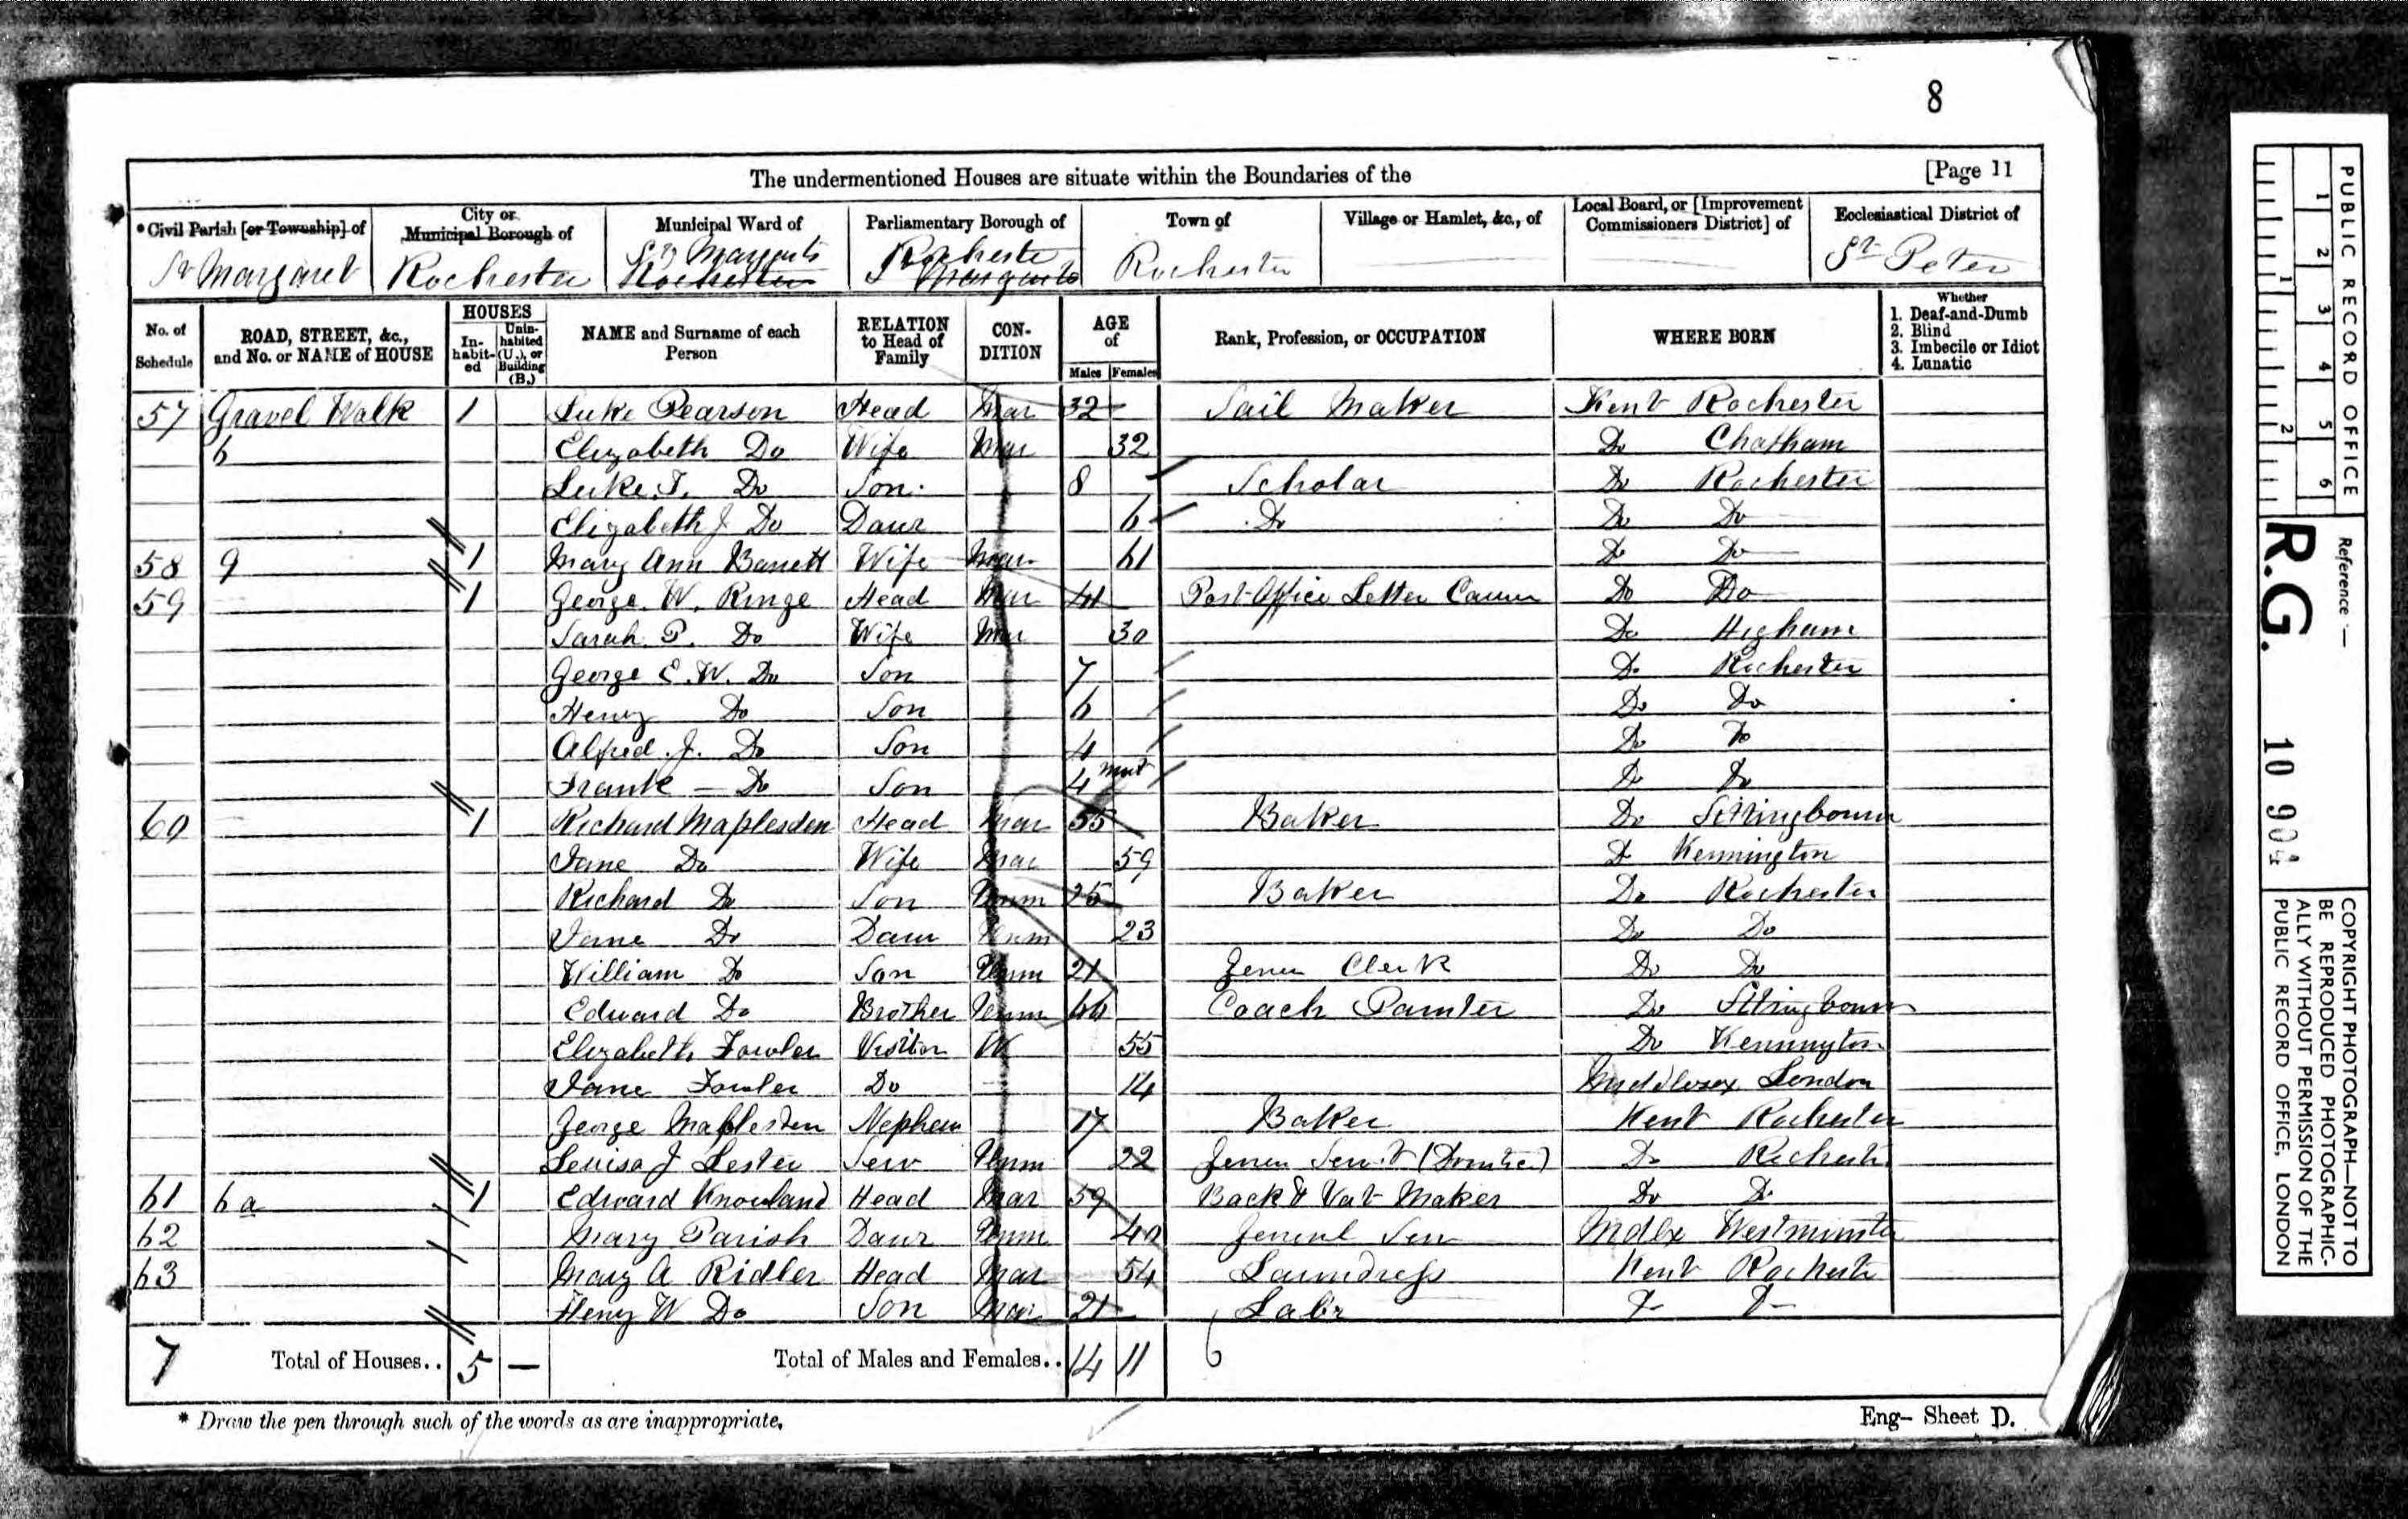 8
The undermentioned Houses are situate within the Boundaries of the [Page 11
*Civil Parish [or Township] of City or Municipal Borough of Municipal Ward of Parliamentary Borough of Town of Village or Hamlet, &c., of Local Board, or [Improvement Commissioners District] of Ecclesiastical District of
St Margaret Rochester St Margarets Rochester Rochester Margarets Rochester St Peter
No. of Schedule ROAD, STREET, &c., and No. or NAME of HOUSE HOUSES In-habit-ed Unin-habited (U.), or Building (B.) NAME and Surname of each Person RELATION to Head of Family CON-DITION AGE of Males Females Rank, Profession, or OCCUPATION WHERE BORN Whether 1. Deaf-and-Dumb 2. Blind 3. Imbecile or Idiot 4. Lunatic
57 Gravel Walk 1 Luke Pearson Head Mar 32 Sail Maker Kent Rochester
6 Elizabeth Do Wife Mar 32 Do Chatham
Luke. T. Do Son 8 Scholar Do Rochester
Elizabeth J Do Daur 6 Do Do Do
58 9 1 Mary Ann Barrett Wife Mar 61 Do Do
59 1 George. W. Ringe Head Mar 41 Post Office Letter Carrier Do Do
Sarah. P. Do Wife Mar 30 Do Higham
George E. W. Do Son 7 Do Rochester
Henry Do Son 6 Do Do
Alfred. J. Do Son 4 Do Do
Frank Do Son 4 Do Do
60 1 Richard Maplesden Head Mar 55 Baker Do Sittingbourn
Jane Do Wife Mar 59 D Kennington
Richard Do Son Unm 25 Baker Do Rochester
Jane Do Daur Unm 23 Do Do
William Do Son Unm 21 Clerk Do Do
Edward Do Brother Unm 44 Coach Painter Do Sittingbourn
Elizabeth Fowler Visitor W 55 Do Kennington
Jane Fowler Do 14 Middlesex London
George Maplesden Nephew 17 Baker Kent Rochester
Louisa J Lester Serv Unm 22 Do Rochester
61 6a 1 Edward Knowland Head Mar 59 Back & Vat Maker Do Do
62 Mary Parish Daur Unm 40 General Serv Mdlx Westminster
63 Mary A Ridler Head Mar 54 Laundress Kent Rochester
Henry W Do Son Mar 21 Labr
7 Total of Houses.. 5 — Total of Males and Females.. 14 11
* Draw the pen through such of the words as are inappropriate.
Eng- Sheet D.
PUBLIC RECORD OFFICE
1 2 3 4 5 6
1 2
Reference :—
R.G. 10 904
COPYRIGHT PHOTOGRAPH—NOT TO
BE REPRODUCED PHOTOGRAPHIC-
ALLY WITHOUT PERMISSION OF THE
PUBLIC RECORD OFFICE, LONDON